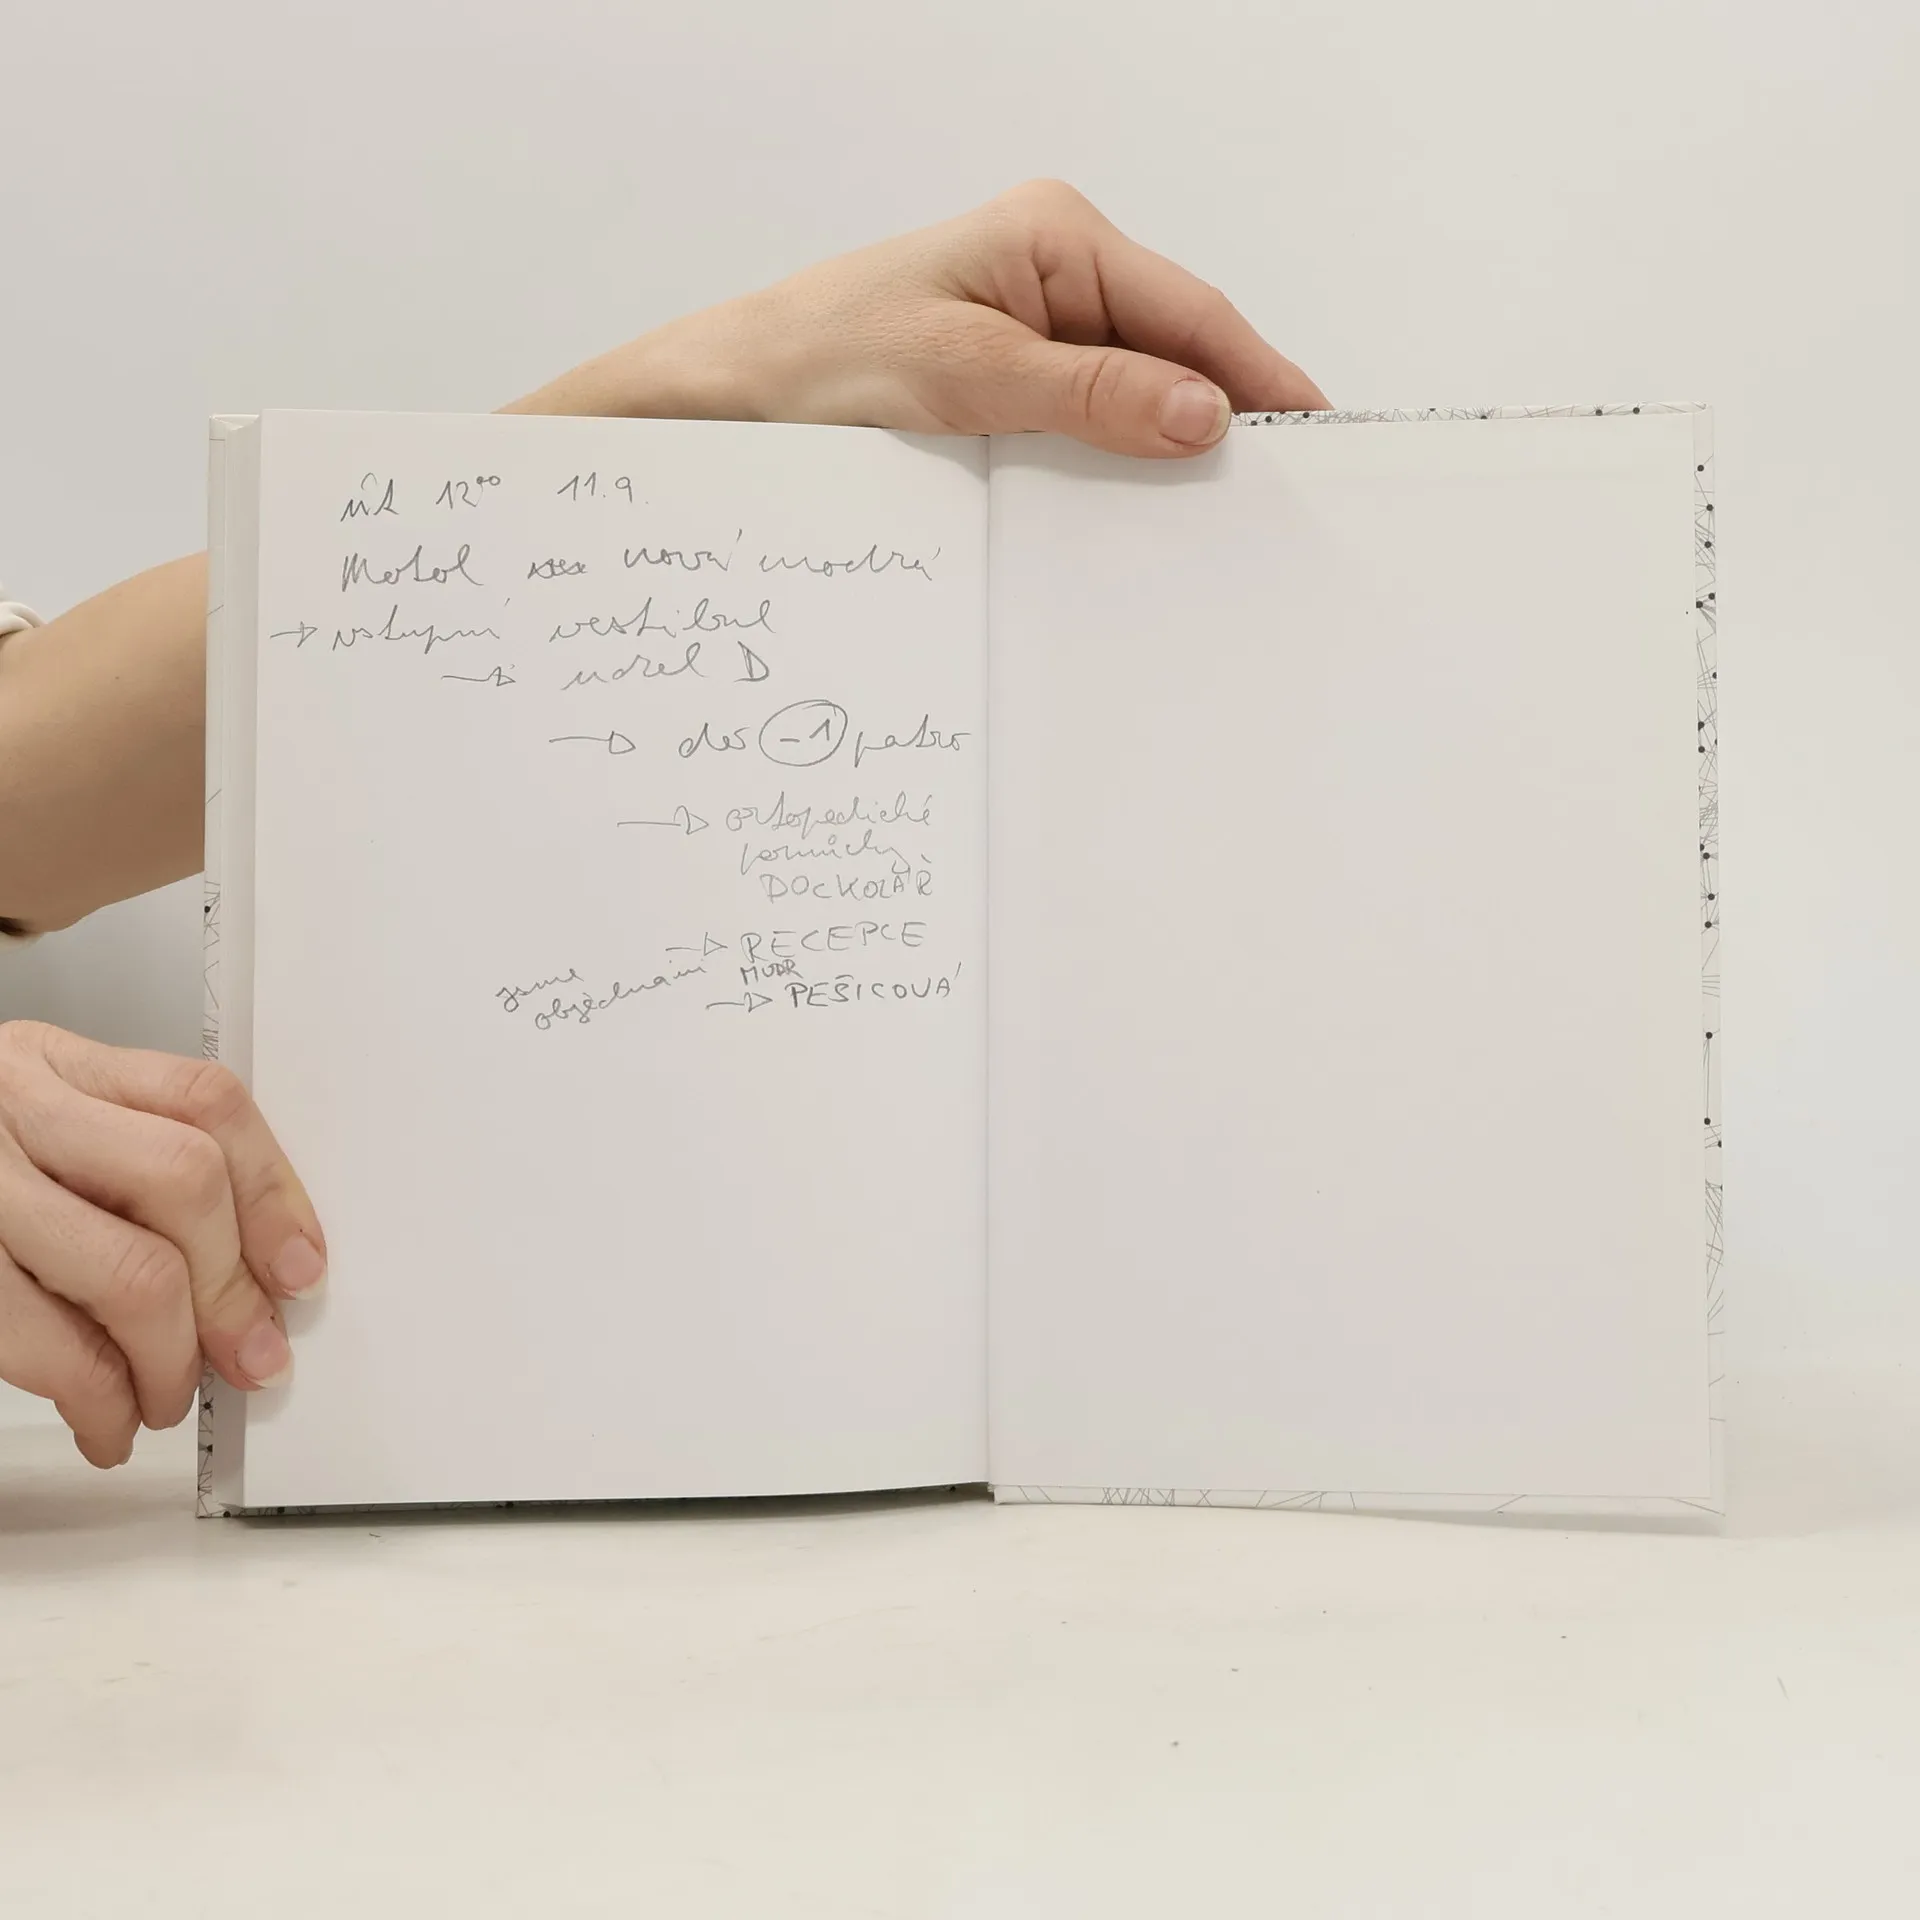 út 12⁰⁰ 11.9.
Motol nová modrá
→ vstupní vestibul
→ uzel D
→ do -1 patro
→ ortopedické
pomůcky
DOCKOLÁŘ
→ RECEPCE
jsme objednáni
MUDR
→ PEŠICOVÁ